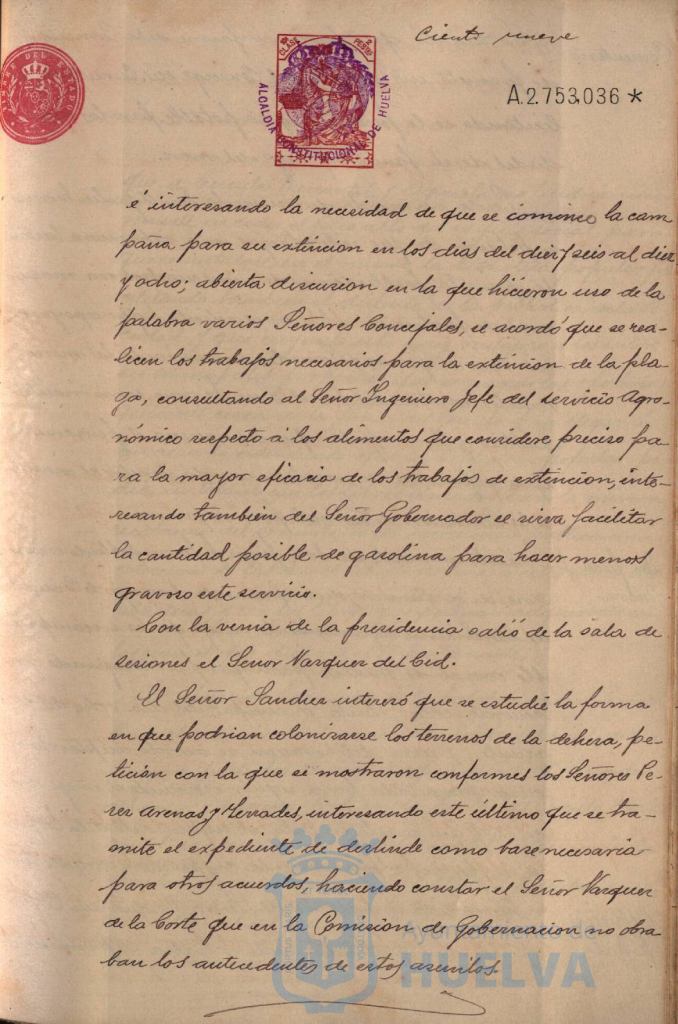 Ciento nueve
TIMBRE DEL ESTADO
CLASE 8ª 2 PESETAS
ALCALDIA CONSTITUCIONAL DE HUELVA
A.2.753,036 *
é interesando la necesidad de que se comience la cam
paña para su extincion en los dias del diez y seis al diez
y ocho; abierta discusion en la que hicieron uso de la
palabra varios Señores Concejales, se acordó que se rea-
licen los trabajos necesarios para la extincion de la pla-
ga, consultando al Señor Ingeniero Jefe del servicio Agro-
nómico respecto á los alimentos que considere preciso pa-
ra la mayor eficacia de los trabajos de extincion, inte-
resando también del Señor Gobernador se sirva facilitar
la cantidad posible de gasolina para hacer menos
gravoso este servicio.
Con la venia de la presidencia salió de la sala de
sesiones el Señor Vazquez del Cid.
El Señor Sanchez interesó que se estudie la forma
en que podrian colonizarse los terrenos de la dehesa, pe-
tición con la que se mostraron conformes los Señores Pe-
rez Arenas y Terrades, interesando este último que se tra-
mite el expediente de deslinde como base necesaria
para otros acuerdos, haciendo constar el Señor Vazquez
de la Corte que en la Comision de Gobernacion no obra
ban los antecedentes de estos asuntos.
Ayuntamiento de
HUELVA